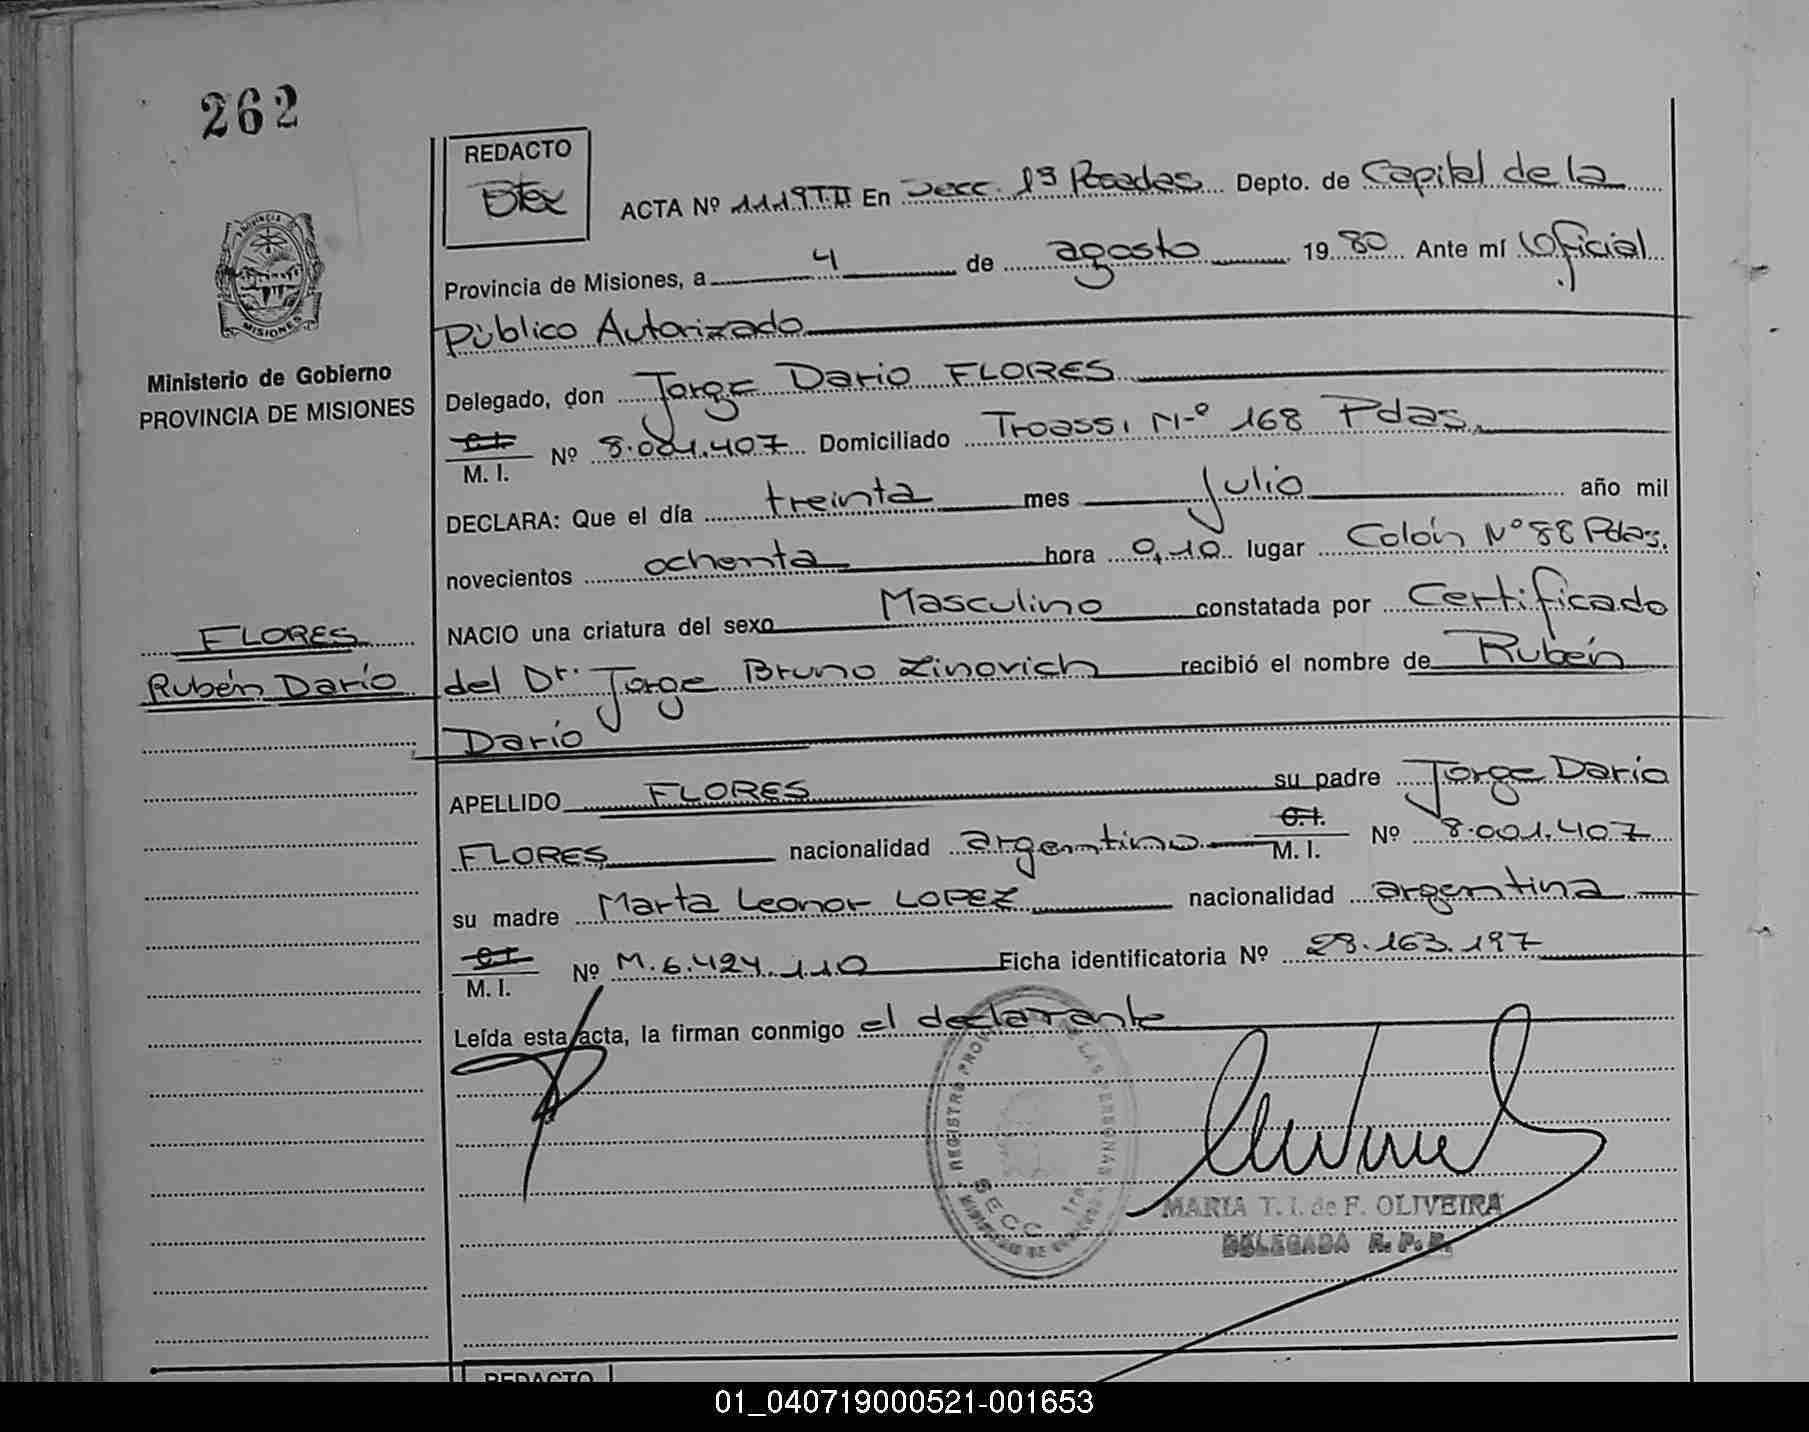 262
REDACTO
ACTA Nº 1119 T.II En Secc. 1ª Posadas Depto. de Capital de la
Provincia de Misiones, a 4 de agosto 1980 Ante mí Oficial
Público Autorizado
Delegado, don Jorge Dario FLORES
C.I. M. I. Nº 8.001.407 Domiciliado Troassi N-º 168 Pdas.
DECLARA: Que el día treinta mes Julio año mil
novecientos ochenta hora 0,10 lugar Colón Nº 88 Pdas.
NACIO una criatura del sexo Masculino constatada por Certificado
del Dr. Jorge Bruno Zinovich recibió el nombre de Rubén
Darío
APELLIDO FLORES su padre Jorge Dario
FLORES nacionalidad argentino C.I. M. I. Nº 8.001.407
su madre Marta Leonor LOPEZ nacionalidad argentina
C.I. M. I. Nº M.6.424.110 Ficha identificatoria Nº 28.163.197
Leída esta acta, la firman conmigo el declarante
PROVINCIA
MISIONES
Ministerio de Gobierno
PROVINCIA DE MISIONES
FLORES
Rubén Darío
REGISTRO PROV. DE LAS PERSONAS
SECC. 1ra
MARIA T. I. de F. OLIVEIRA
DELEGADA R. P. P.
REDACTO
01_040719000521-001653